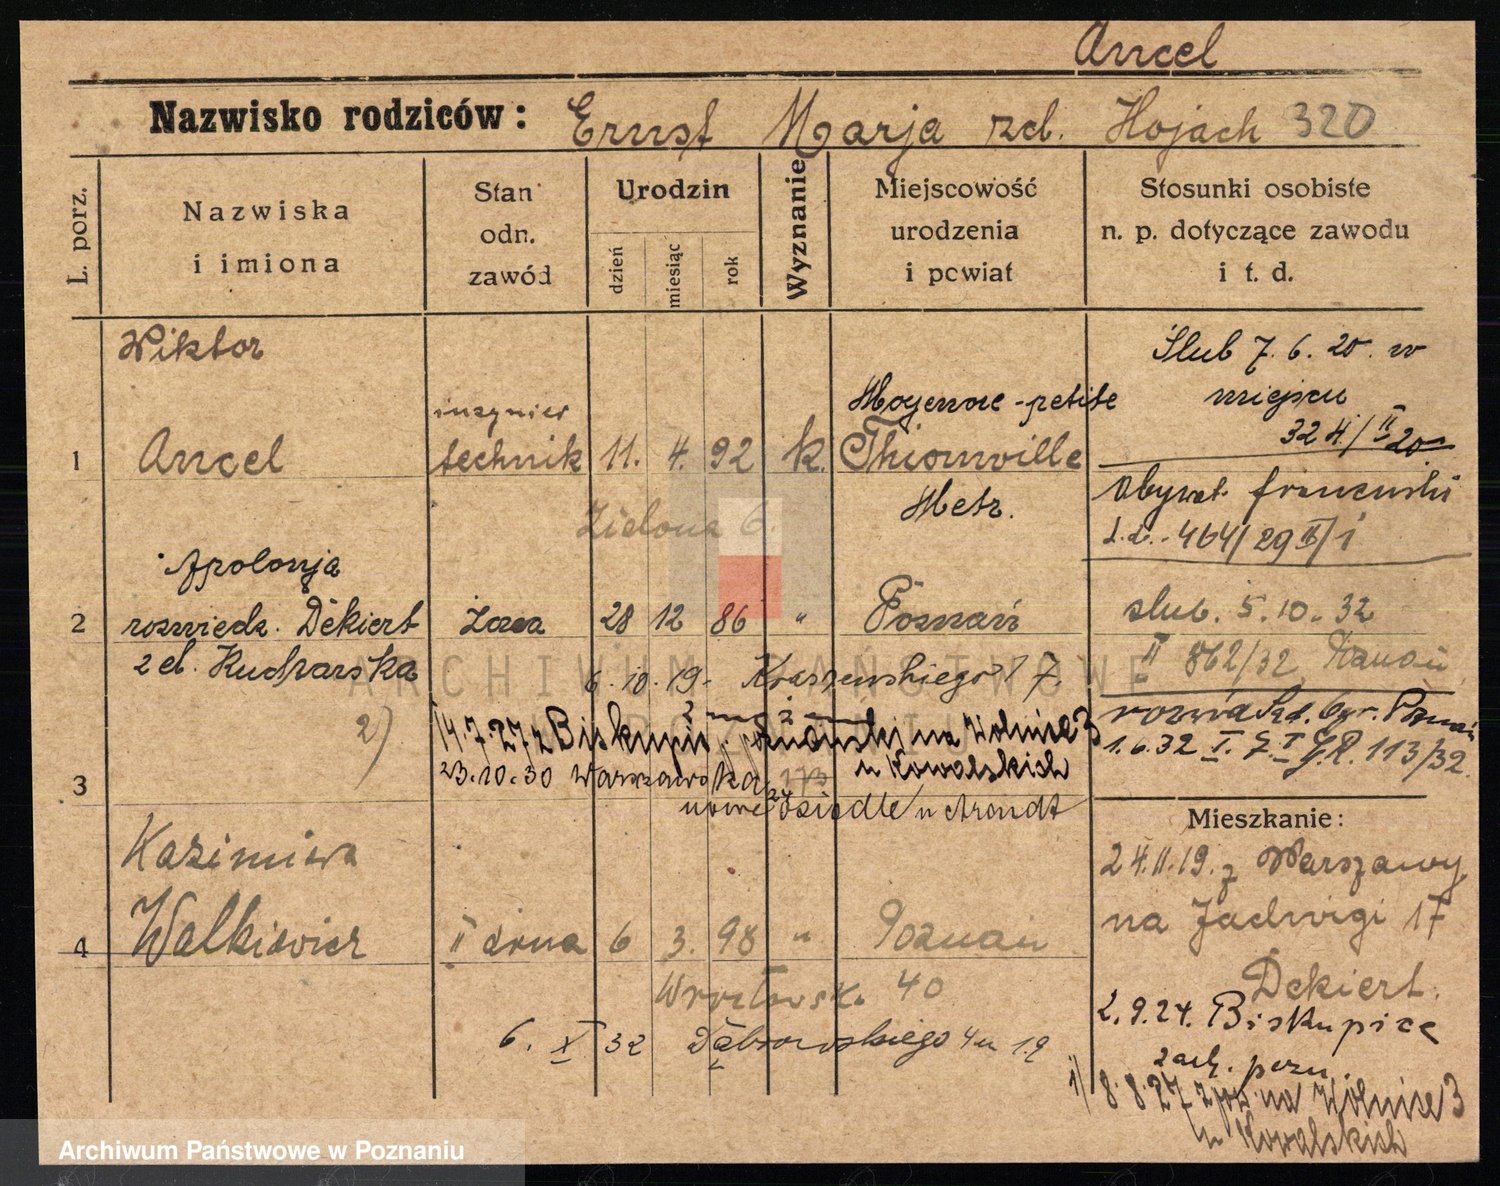 Ancel
Nazwisko rodziców: Ernst Marja zd. Hojach 320
L. porz.
Nazwiska
i imiona
Stan
odn.
zawód
Urodzin
dzień
miesiąc
rok
Wyznanie
Miejscowość
urodzenia
i powiat
Stosunki osobiste
n. p. dotyczące zawodu
i t. d.
Wiktor
inżynier
Moyenvre-petite
1 Ancel technik 11. 4. 92 k. Thionville
Metz.
Zielona 6.
Ślub 7. 6. 20. w
miejscu
324/II 20
Obywat. francuski
L.d. 464/29 II/1
Apolonja
2 rozwiedz. Dekiert żona 28 12 86 " Poznań
zd. Kucharska
6.10.19. Kraszewskiego 17.
2) 14.7.27 z Biskupic, poznański na Wolnica 3
u Kowalskich
23.10.30 Warszawska 173
nowe Osiedle u Arendt
3
ślub. 5.10.32
II 862/32 Poznań
rozwód Sąd. Okr. Poznań
1.6.32 I. Z. I G.R. 113/32.
Kazimiera
4 Walkiewicz II żona 6 3. 98 " Poznań
Wrocławsk. 40
6. X 32 Dąbrowskiego 4 m 19
Mieszkanie:
24.11.19. z Warszawy
na Jadwigi 17
Dekiert.
2.9.24. Biskupice
zach. pozn.
1) 8.8.27 z poz. na Wolnica 3
u Kowalskich
ARCHIWUM PAŃSTWOWE
W POZNANIU
Archiwum Państwowe w Poznaniu